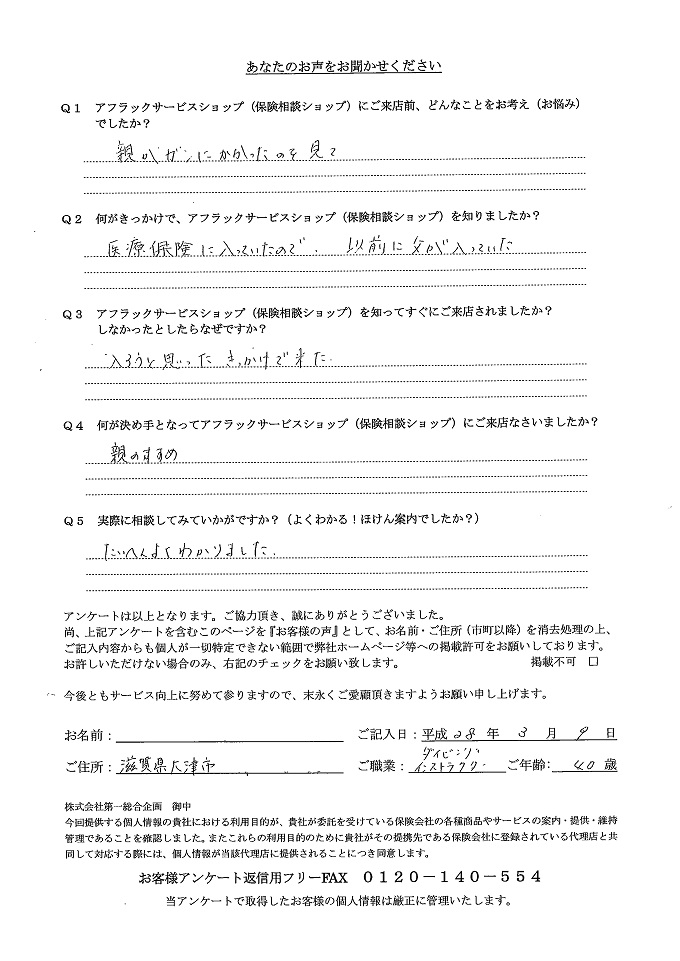 あなたのお声をお聞かせください
Q1 アフラックサービスショップ（保険相談ショップ）にご来店前、どんなことをお考え（お悩み）
でしたか？
親がガンにかかったのを見て
Q2 何がきっかけで、アフラックサービスショップ（保険相談ショップ）を知りましたか？
医療保険に入っていたので、 以前に父が入っていた
Q3 アフラックサービスショップ（保険相談ショップ）を知ってすぐにご来店されましたか？
しなかったとしたらなぜですか？
入ろうと思ったきっかけで来た.
Q4 何が決め手となってアフラックサービスショップ（保険相談ショップ）にご来店なさいましたか？
親のすすめ
Q5 実際に相談してみていかがですか？（よくわかる！ほけん案内でしたか？）
たいへんよくわかりました.
アンケートは以上となります。ご協力頂き、誠にありがとうございました。
尚、上記アンケートを含むこのページを『お客様の声』として、お名前・ご住所（市町以降）を消去処理の上、
ご記入内容からも個人が一切特定できない範囲で弊社ホームページ等への掲載許可をお願いしております。
お許しいただけない場合のみ、右記のチェックをお願い致します。 掲載不可 □
今後ともサービス向上に努めて参りますので、末永くご愛顧頂きますようお願い申し上げます。
お名前： ご記入日：平成28年 3月 9日
ご住所：滋賀県大津市 ご職業：ダイビングインストラクター ご年齢：40歳
株式会社第一総合企画 御中
今回提供する個人情報の貴社における利用目的が、貴社が委託を受けている保険会社の各種商品やサービスの案内・提供・維持
管理であることを確認しました。またこれらの利用目的のために貴社がその提携先である保険会社に登録されている代理店と共
同して対応する際には、個人情報が当該代理店に提供されることにつき同意します。
お客様アンケート返信用フリーFAX 0120－140－554
当アンケートで取得したお客様の個人情報は厳正に管理いたします。